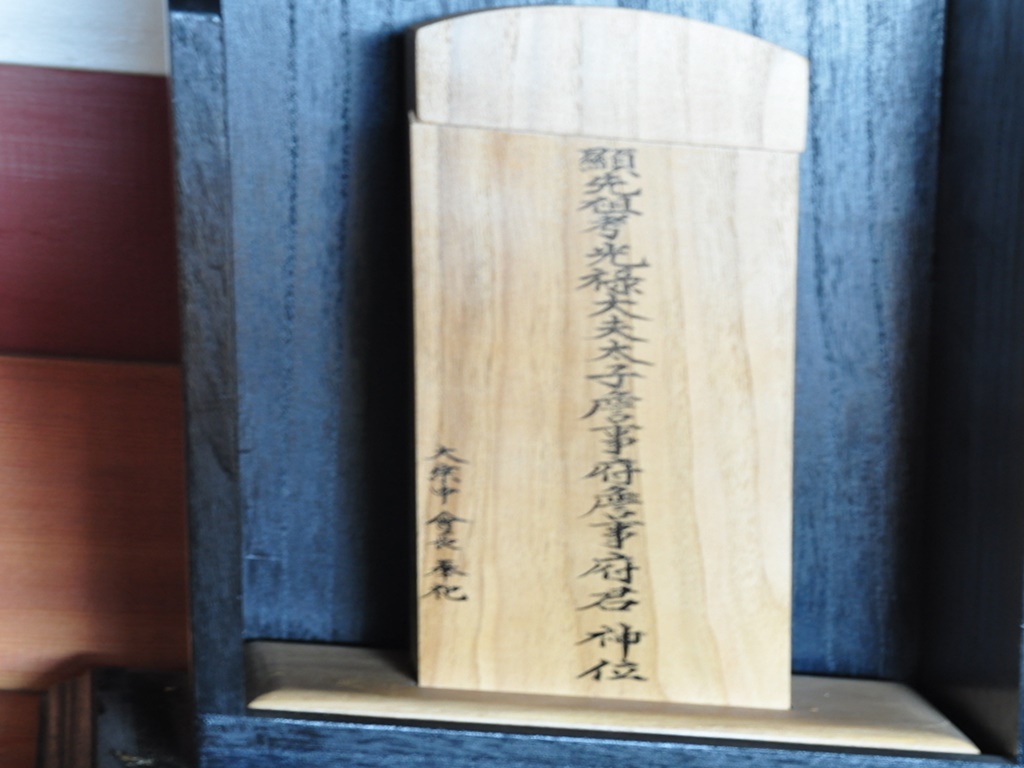 顯先祖考光祿大夫太子詹事府詹事府君 神位
大宗中會長奉祀